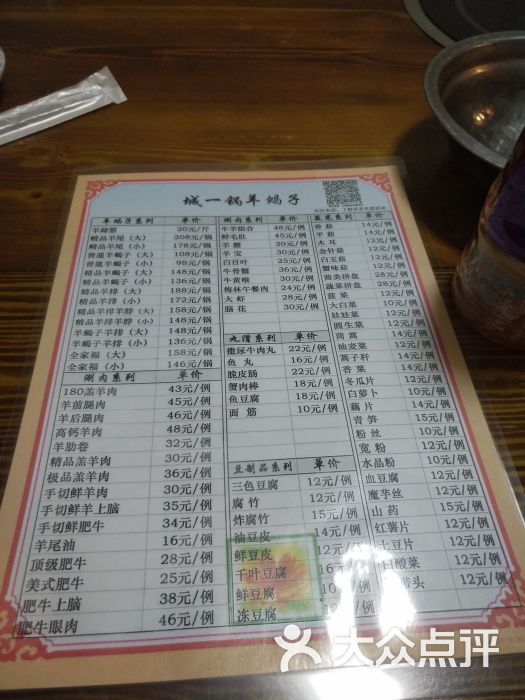 城一锅羊蝎子
羊蝎子系列 单价
20元/斤
精品羊尾（大） 208元/锅
精品羊尾（小） 178元/锅
普通羊蝎子（大） 108元/锅
普通羊蝎子（小） 98元/锅
精品羊蝎子（大） 158元/锅
精品羊蝎子（小） 136元/锅
精品羊排（大） 188元/锅
精品羊排（小） 172元/锅
精品羊排羊脖（大） 158元/锅
精品羊排羊脖（小） 148元/锅
羊蝎子羊排（大） 148元/锅
羊蝎子羊排（小） 136元/锅
全家福（大） 158元/锅
全家福（小） 146元/锅
涮肉系列 单价
180羔羊肉 43元/例
羊前腿肉 45元/例
羊后腿肉 46元/例
高钙羊肉 48元/例
羊肋卷 32元/例
精品羔羊肉 30元/例
极品羔羊肉 36元/例
手切鲜羊肉 30元/例
手切鲜羊上脑 35元/例
手切鲜肥牛 34元/例
羊尾油 16元/例
顶级肥牛 28元/例
美式肥牛 25元/例
肥牛上脑 38元/例
肥牛眼肉 46元/例
涮肉系列 单价
牛羊组合 48元/例
鲜毛肚 45元/例
羊腰 30元/例
羊宝 30元/例
白百叶 25元/例
牛骨髓 36元/例
牛黄喉 30元/例
梅林午餐肉 24元/例
大虾 28元/例
脑花 30元/例
丸滑系列 单价
撒尿牛肉丸 22元/例
鱼丸 16元/例
脆皮肠 22元/例
蟹肉棒 18元/例
鱼豆腐 18元/例
面筋 10元/例
豆制品系列 单价
三色豆腐 12元/例
腐竹 12元/例
炸腐竹 15元/例
油豆皮 14元/例
鲜豆皮
千叶豆腐 16元/例
鲜豆腐
冻豆腐
蔬菜系列 单价
香菇 14元/例
平菇 14元/例
木耳 12元/例
金针菇 12元/例
白玉菇 12元/例
蟹味菇 12元/例
菌类拼盘 28元/例
蔬菜拼盘 28元/例
菠菜 12元/例
大白菜 10元/例
娃娃菜 12元/例
圆生菜 12元/例
茼蒿 14元/例
油麦菜 12元/例
蒿子秆 14元/例
香菜 12元/例
冬瓜片 12元/例
白萝卜 10元/例
藕片 14元/例
青笋 15元/例
粉丝 10元/例
宽粉 12元/例
水晶粉 10元/例
血豆腐 12元/例
魔芋丝 12元/例
山药 15元/例
红薯片 12元/例
土豆片 12元/例
白酸菜 12元/例
12元/例
大众点评